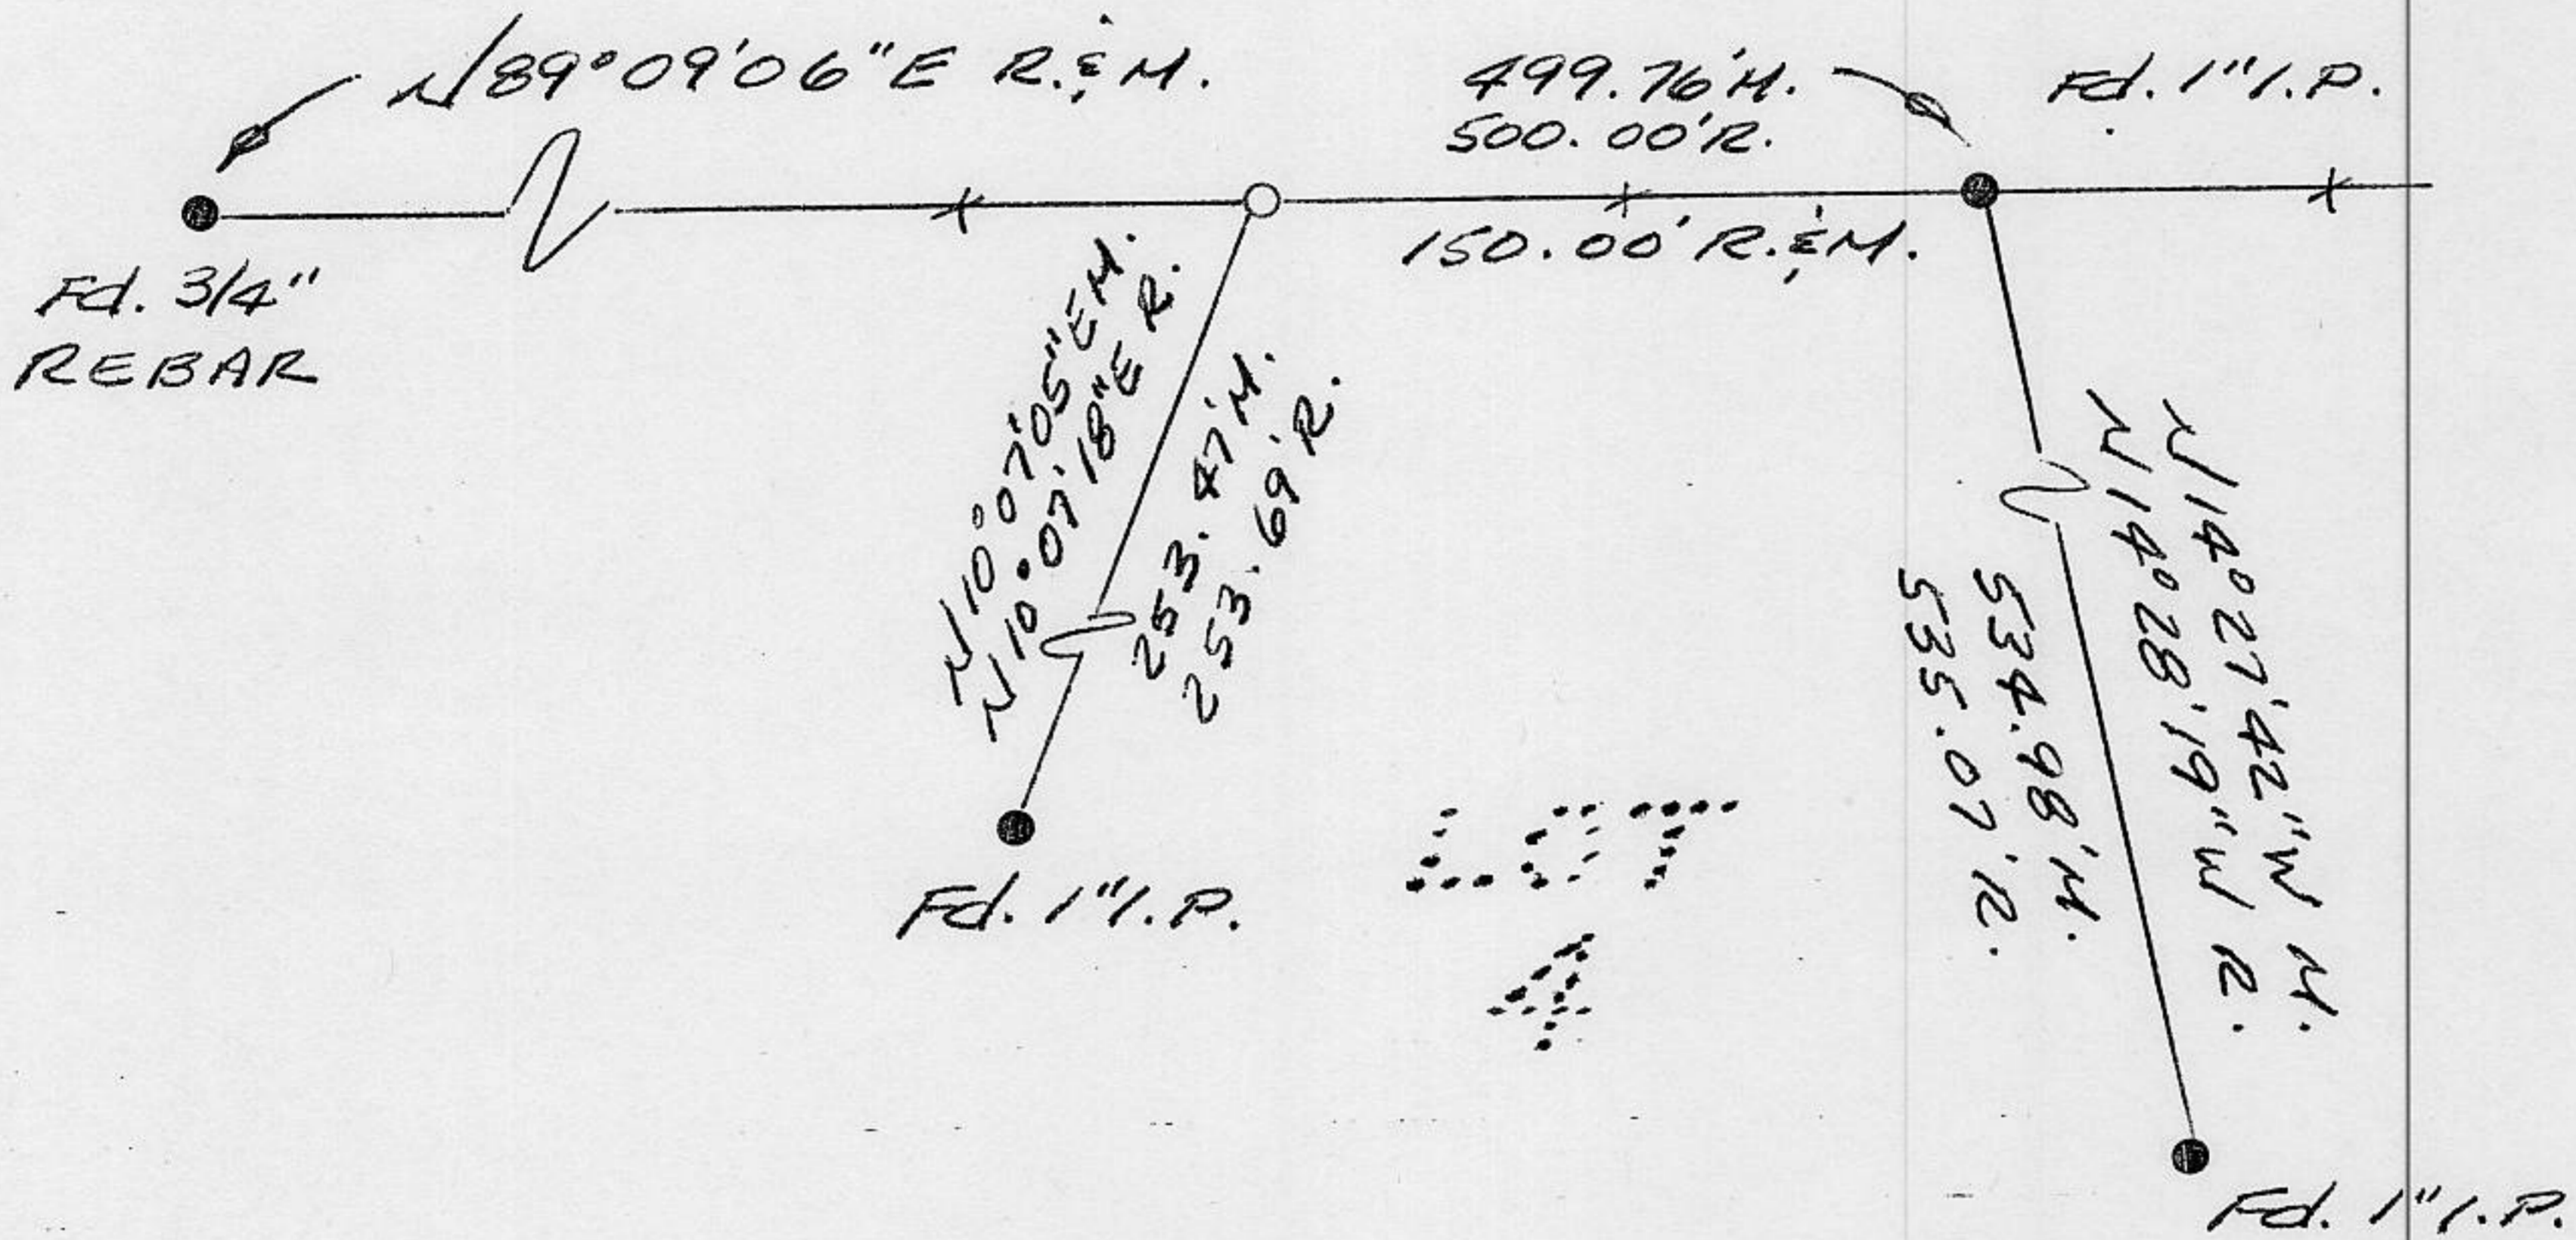 N89°09'06"E R.&M.
499.76'M.
500.00'R.
Fd. 1" I.P.
150.00' R.&M.
Fd. 3/4"
REBAR
N10°07'05"E M.
N10°07'18"E R.
253.47'M.
253.69'R.
N14°27'42"W M.
N14°28'19"W R.
534.98'M.
535.07'R.
LOT
4
Fd. 1" I.P.
Fd. 1" I.P.